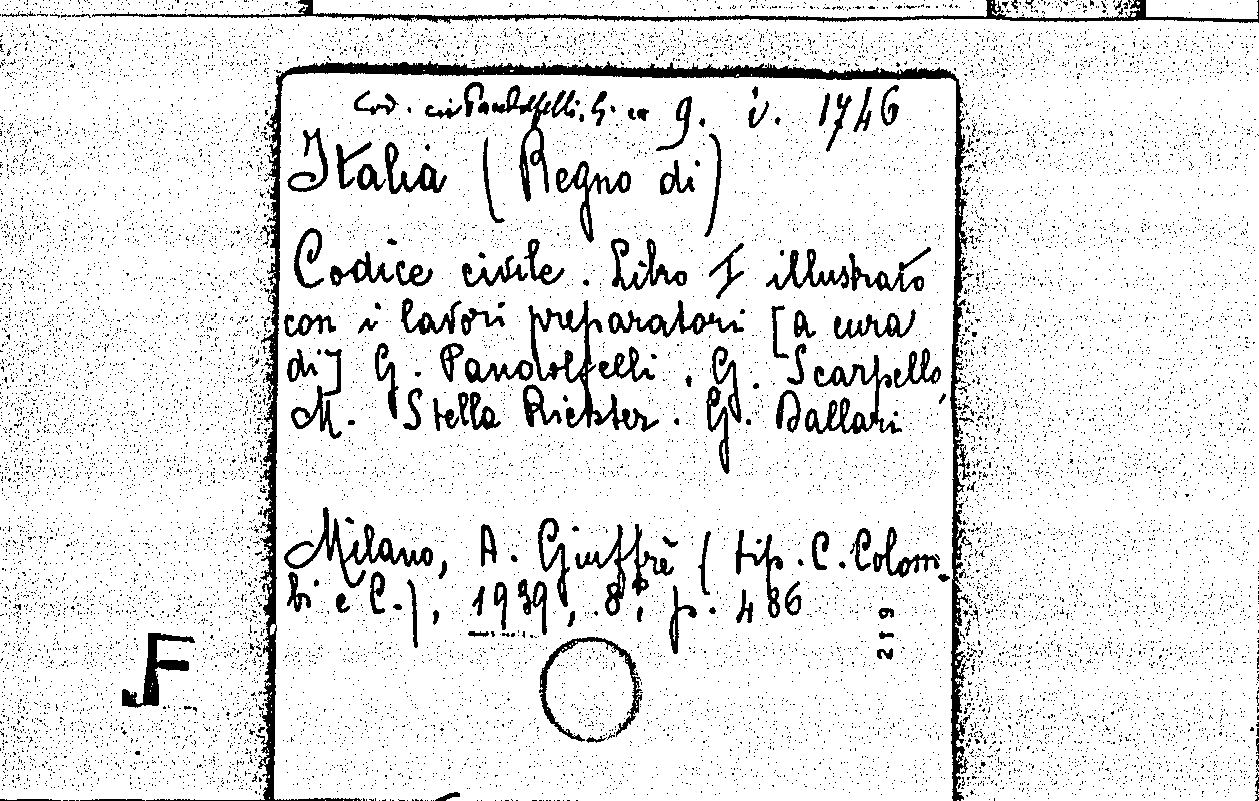 Cod. civ Pandolfelli, G. ca g. i. 1746
Italia (Regno di)
Codice civile. Libro I illustrato
con i lavori preparatori [a cura
di] G. Pandolfelli, G. Scarpello,
M. Stella Richter. G. Dallari
Milano, A. Giuffrè (tip. C. Colom-
bi e C.), 1939, 8°, p. 486
219
F